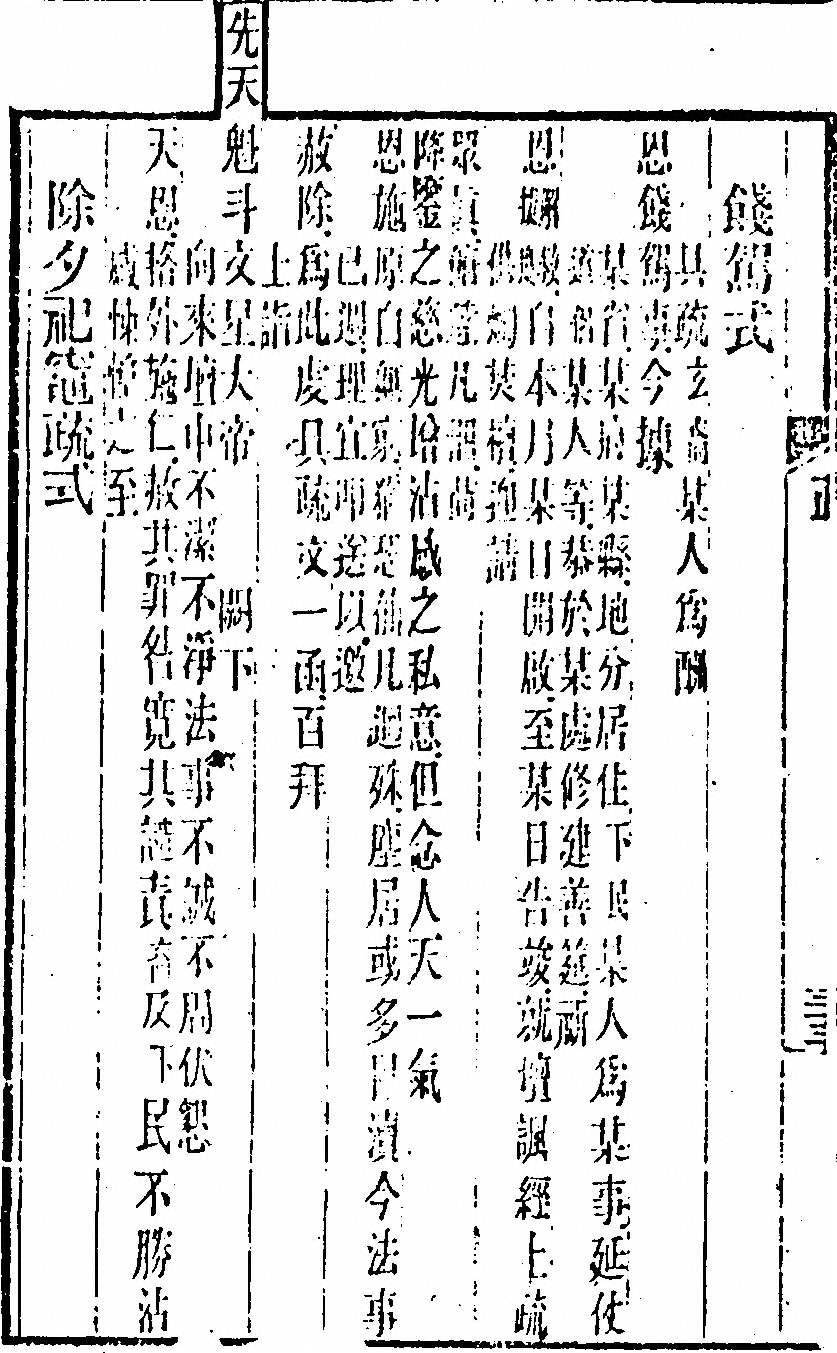 餞駕式
具疏玄裔某人爲酬
恩餞駕事今據
某省某府某縣地分居住下民某人爲某事延仗
道侶某人等恭於某處修建善筵
恩自本月某日開啟至某日告竣就壇諷經上疏
供迎請
眾真凡
降鑒之慈光增沾感之私意但念人天一氣
恩施原自無仙凡迥殊塵居或多冒瀆今法事
已週理宜卽送以邀
赦除爲此虔具疏文一函百拜
上詣
先天魁斗文星大帝 闕下
向來壇中不潔不淨法事不誠不周伏懇
天恩格外施仁赦其罪咎寬其譴責下民不勝沾
感悚惶之至
除夕祀竈疏式